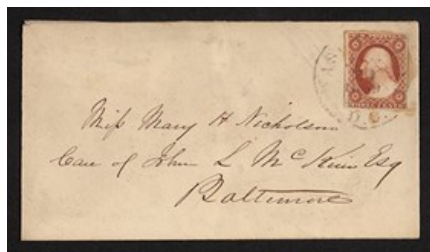 D.C.
Miss Mary H Nicholson
Care of John L McKim Esq
Baltimore